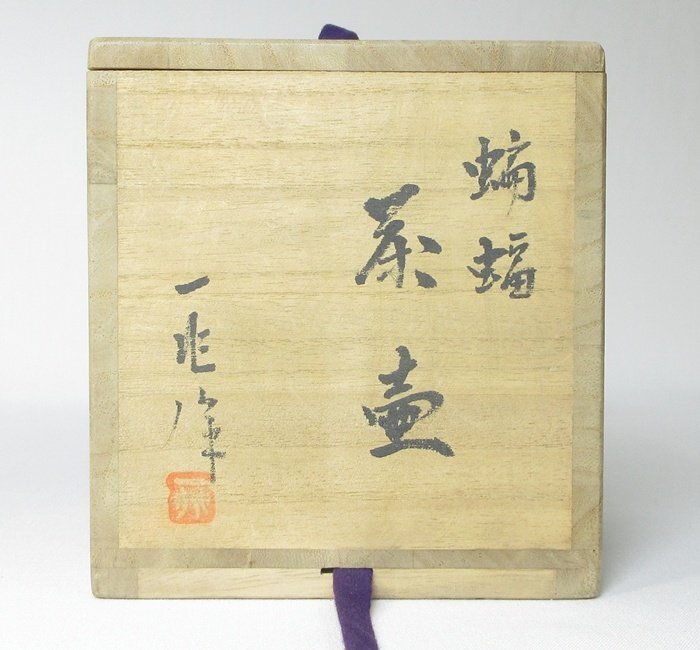 蝙蝠
茶壷
一兆作